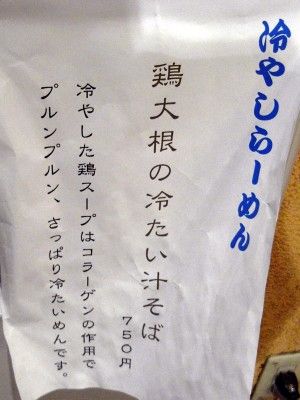 冷やしらーめん
鶏大根の冷たい汁そば
750円
冷やした鶏スープはコラーゲンの作用で
プルンプルン、さっぱり冷たいめんです。